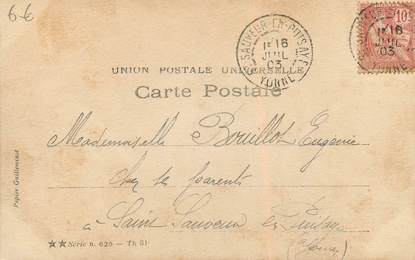 6€
ST SAUVEUR-EN-PUISAYE
1E 16
JUIL
03
YONNE
10
1E 16
JUIL
03
UNION POSTALE UNIVERSELLE
Carte Postale
Mademoiselle Bouillot Eugenie
chez ses parents
à Saint Sauveur en Puisaye
(Yonne)
Papier Guilleminot
★★ Série n. 625 - Th 81